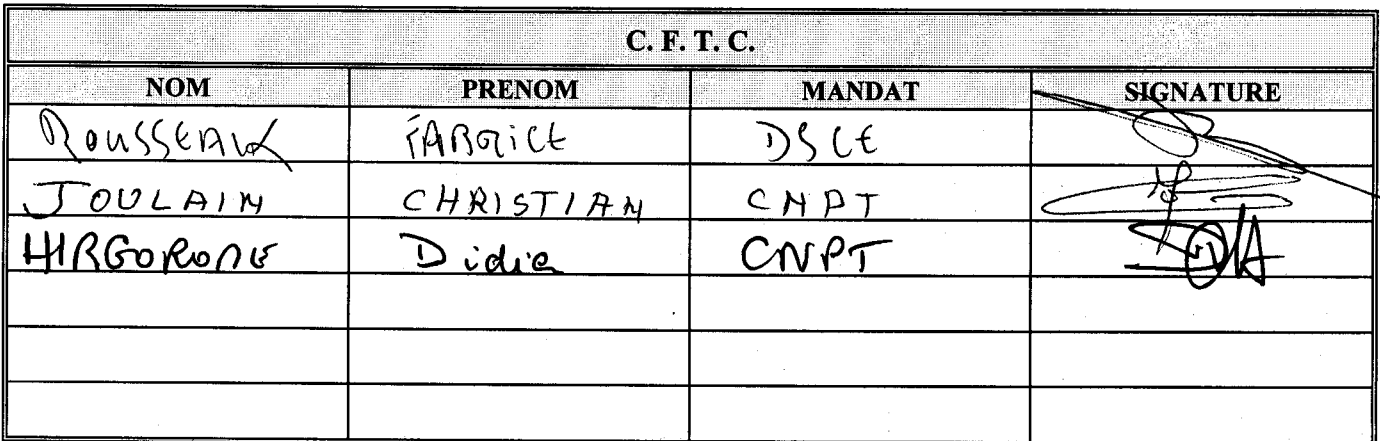 C. F. T. C.
NOM PRENOM MANDAT SIGNATURE
ROUSSEAUX FABRICE DSCE
JOULAIN CHRISTIAN CNPT
Didier CNPT